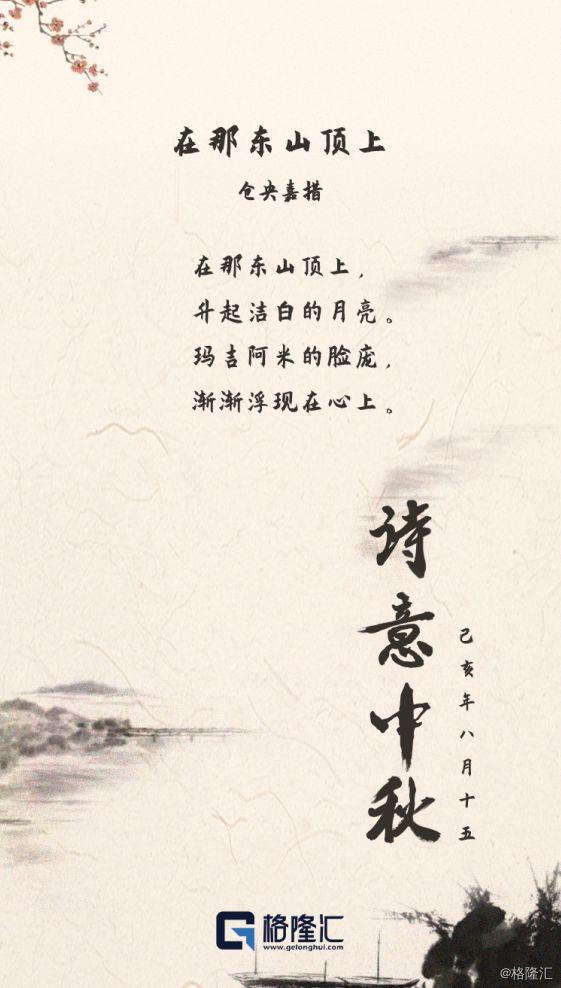 在那东山顶上
仓央嘉措
在那东山顶上，
升起洁白的月亮。
玛吉阿米的脸庞，
渐渐浮现在心上。
诗意中秋
己亥年八月十五
格隆汇
www.gelonghui.com
@格隆汇